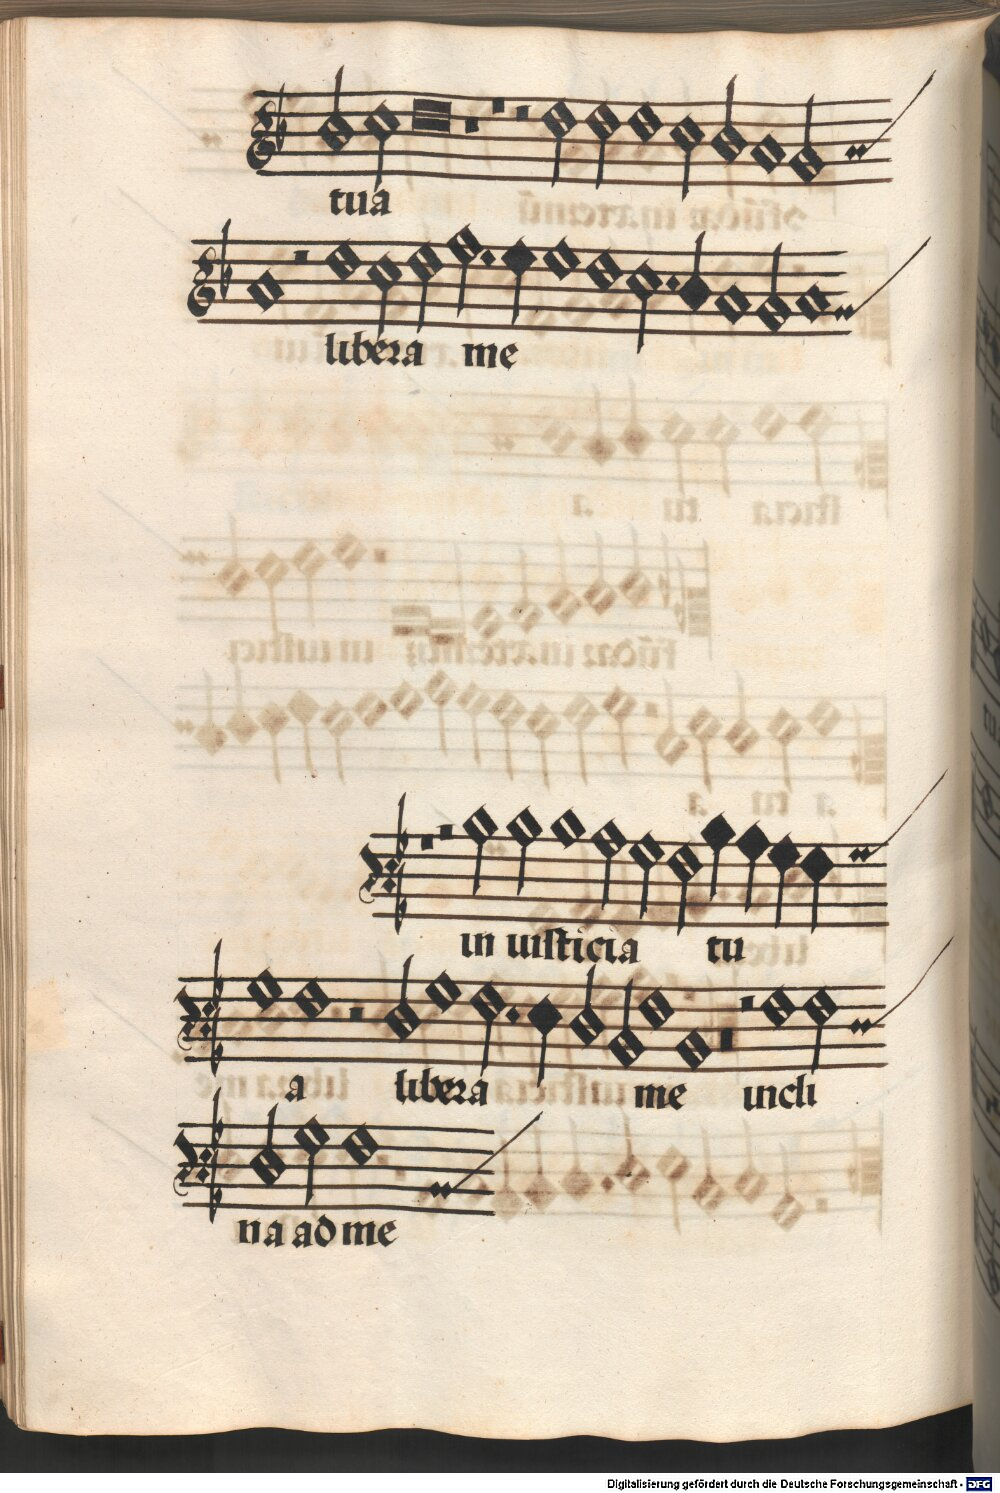 tua
libera me
in iusticia tu
a libera me incli
na ad me
Digitalisierung gefördert durch die Deutsche Forschungsgemeinschaft - DFG